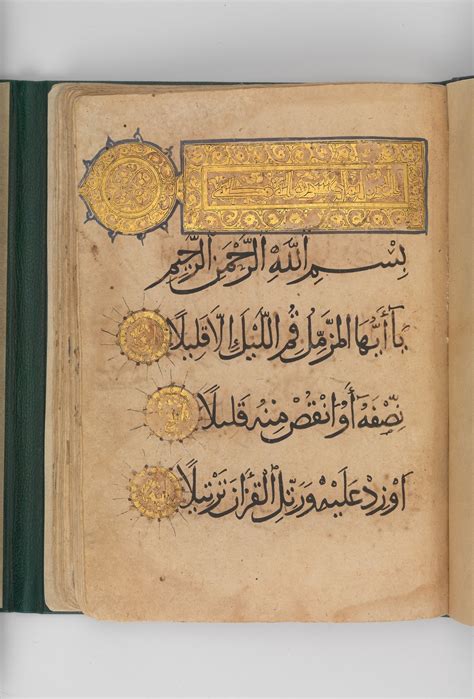 بِسْمِ اللهِ الرَّحْمٰنِ الرَّحِيْمِ
يَآ أَيُّهَا المُزَّمِّلُ قُمِ اللَّيْلَ اِلَّا قَلِيْلًا
نِصْفَهُ أَوِ انْقُصْ مِنْهُ قَلِيْلًا
اَوْ زِدْ عَلَيْهِ وَرَتِّلِ القُرْآنَ تَرْتِيْلًا